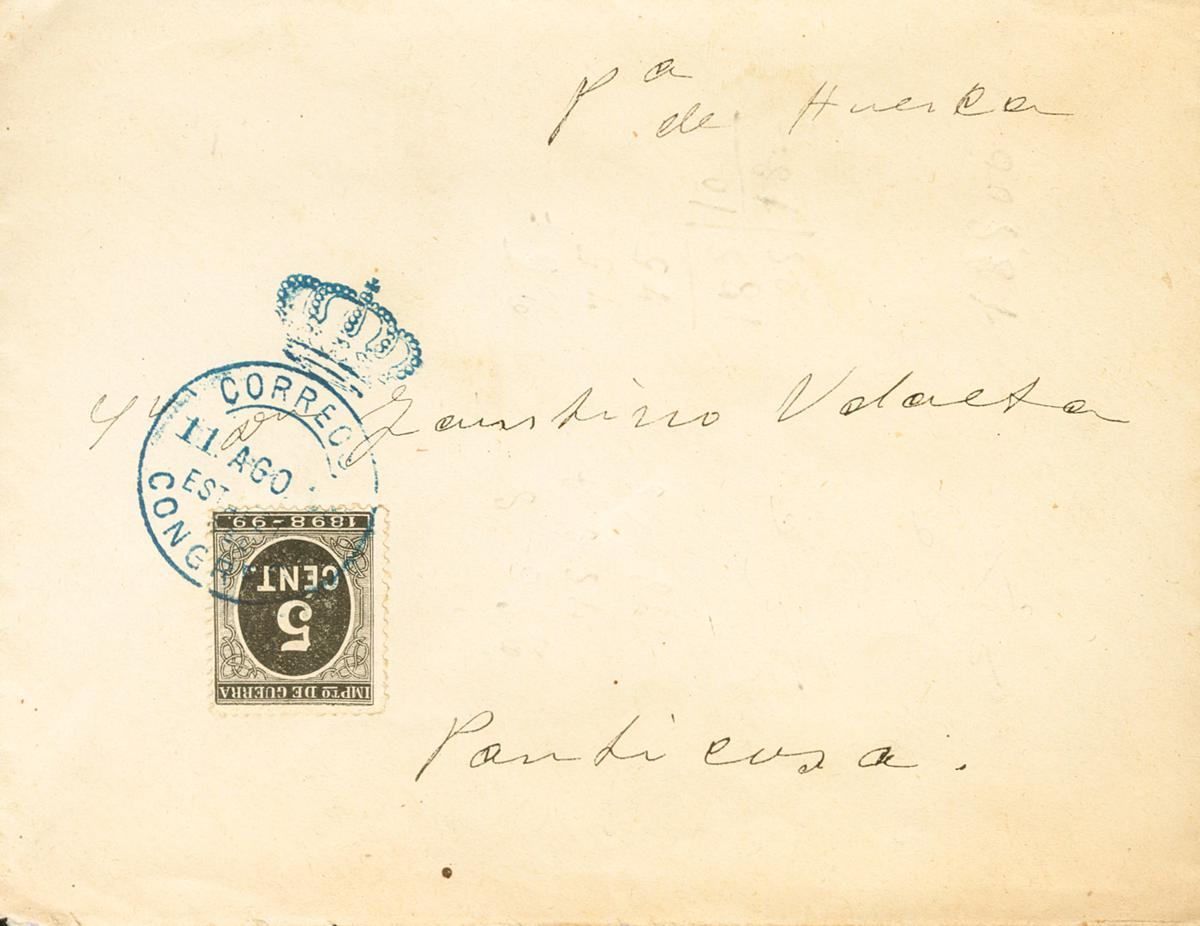 Pª de Huesca
CORREOS
11 AGO
EST
CONGRESO
Sr Dn Faustino Udaeta
1898-99.
5
CENT.
IMPTO DE GUERRA
Panticosa.